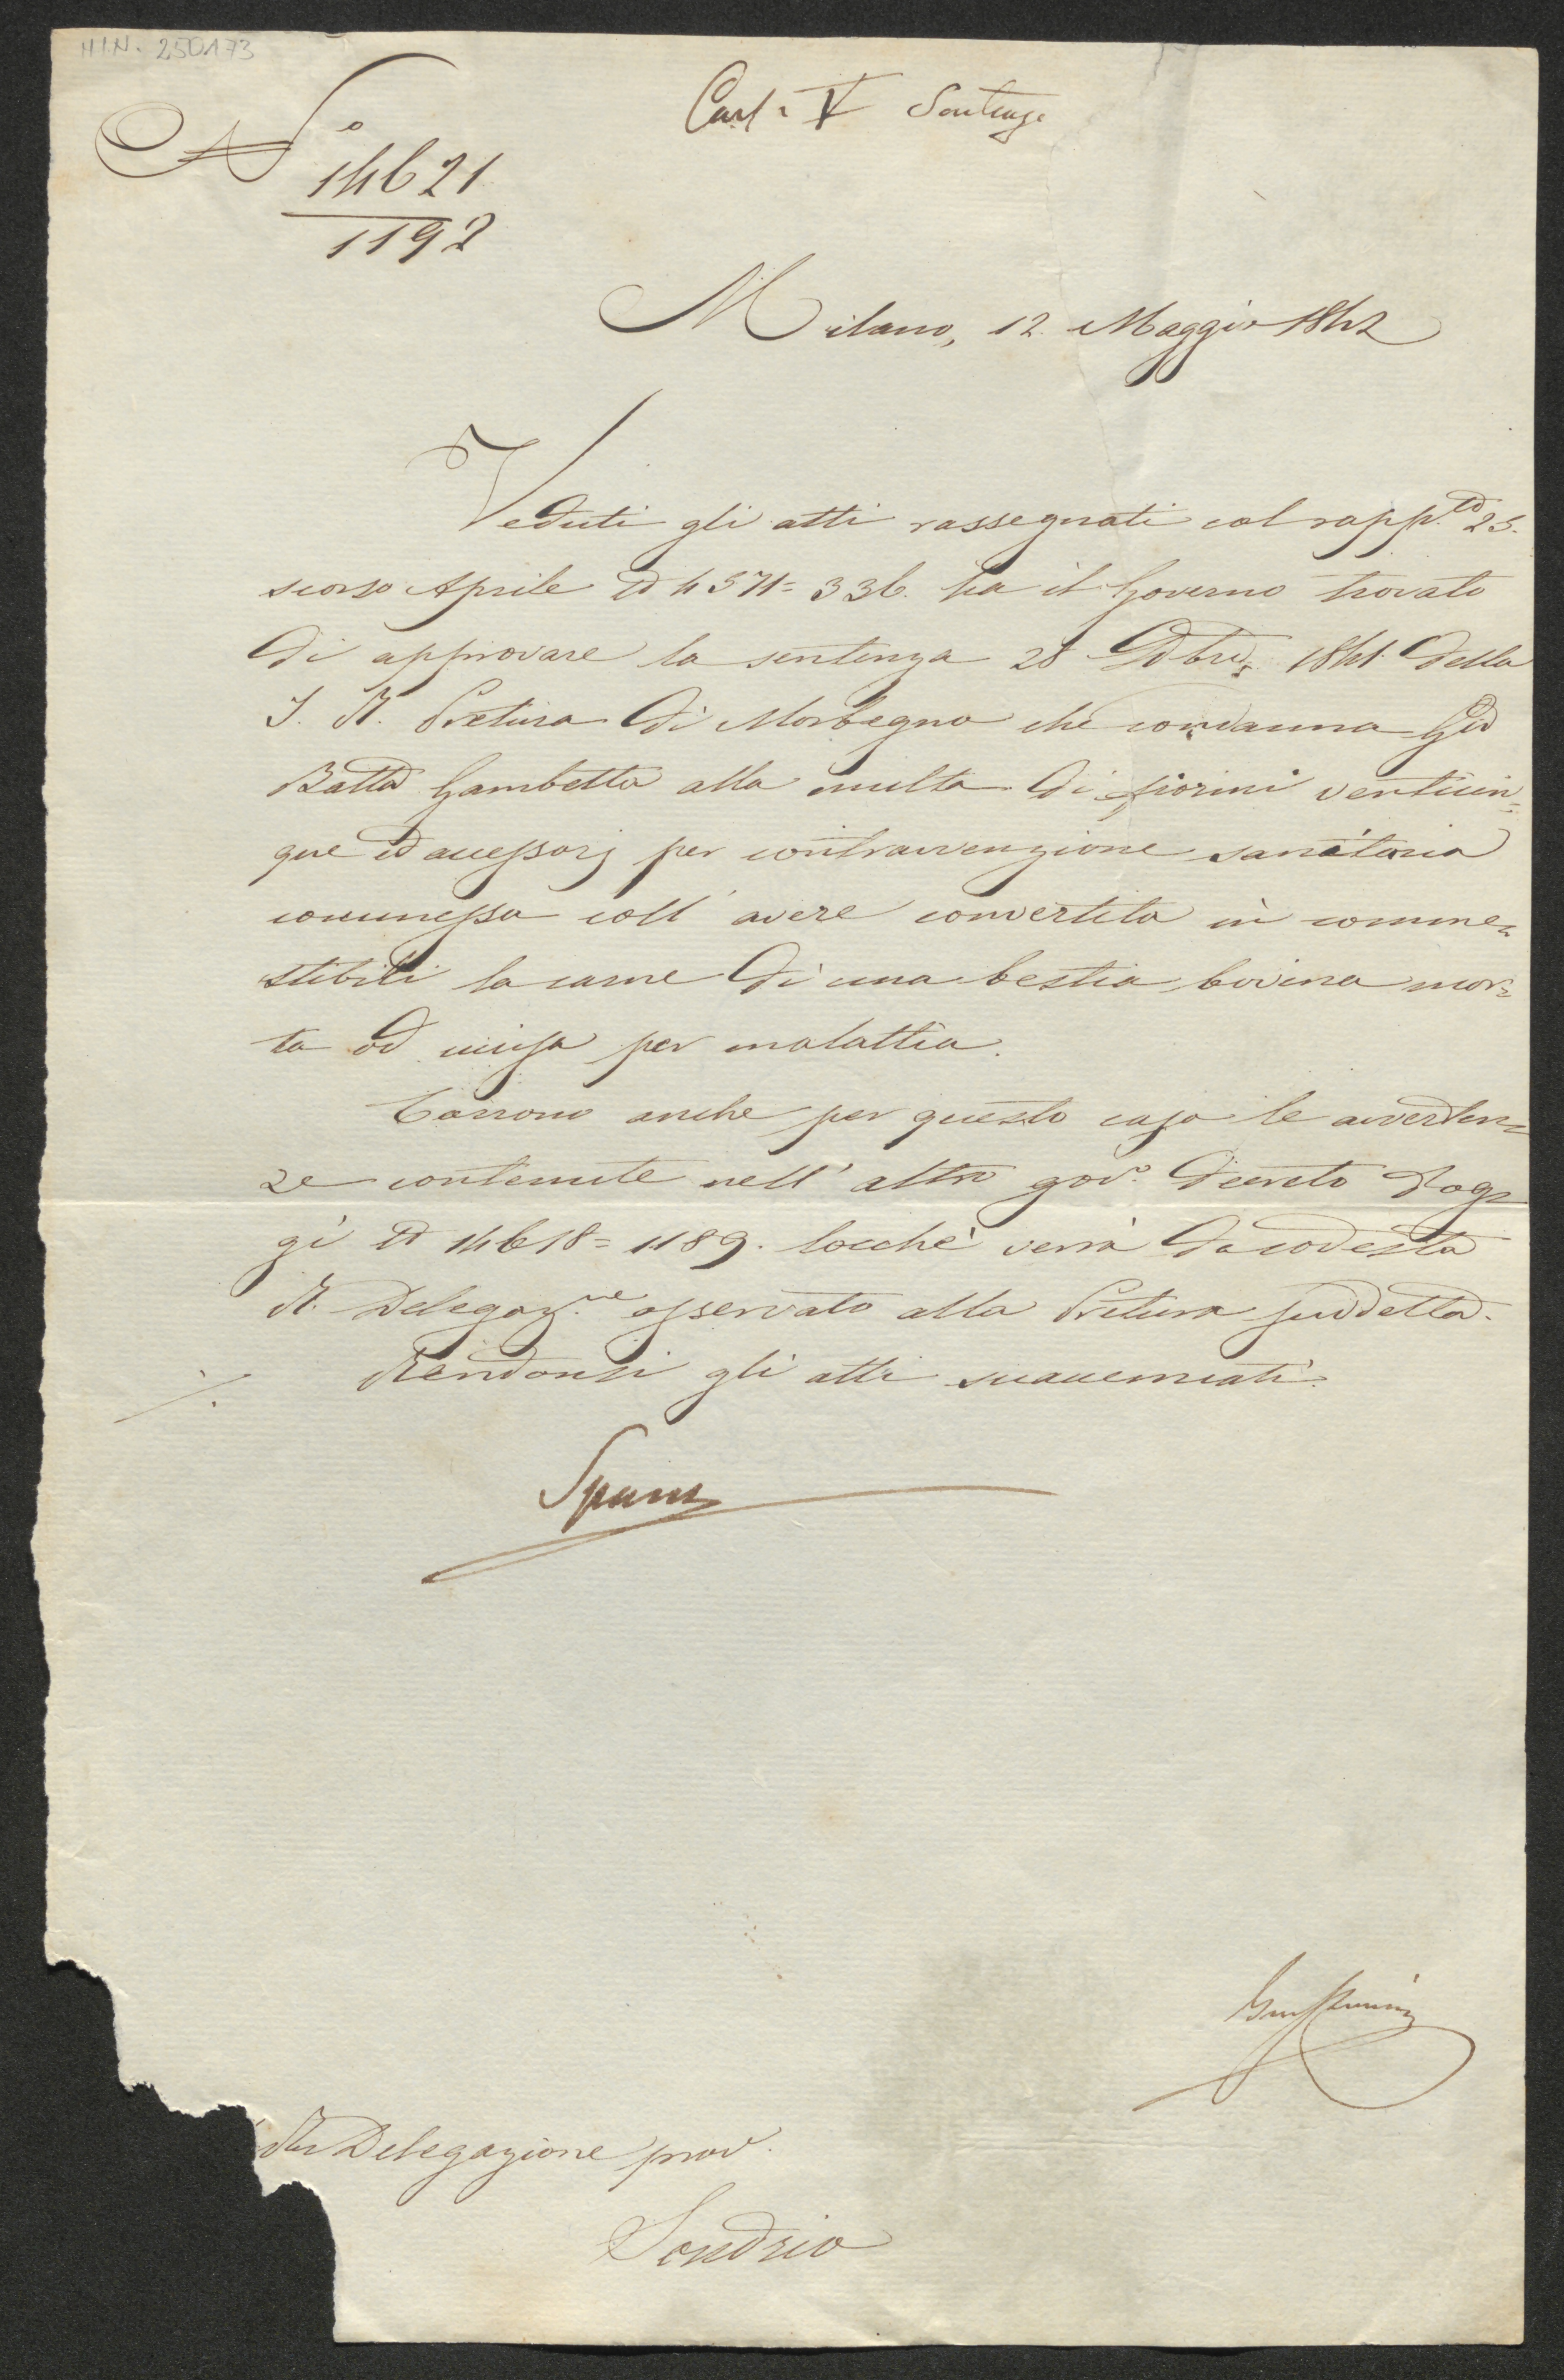 H.I.N. 250173
Cart. V
N.o 14621
1192
Milano, 12. Maggio 1842
Veduti gli atti rassegnati col rapp.to 25.
scorso Aprile N 4571=336. ha il Governo trovato
di approvare la sentenza 28 1841. della
I. R. Pretura di Morbegno che condanna Gio
Batta Gambetta alla multa di fiorini venticin=
que ed accessorj per contravvenzione sanitaria
commessa coll' avere convertita in comme=
stibili la carne di una bestia bovina mor=
ta od uccisa per malattia.
Corrono anche per questo caso le avverten=
ze contenute nell' altro gov.o decreto d'og=
gi N 14618=1189. locchè verrà da codesta
R. Delegaz.ne osservato alla Pretura suddetta.
Rendonsi gli atti suaccennati.
./.
Delegazione prov.
Sondrio